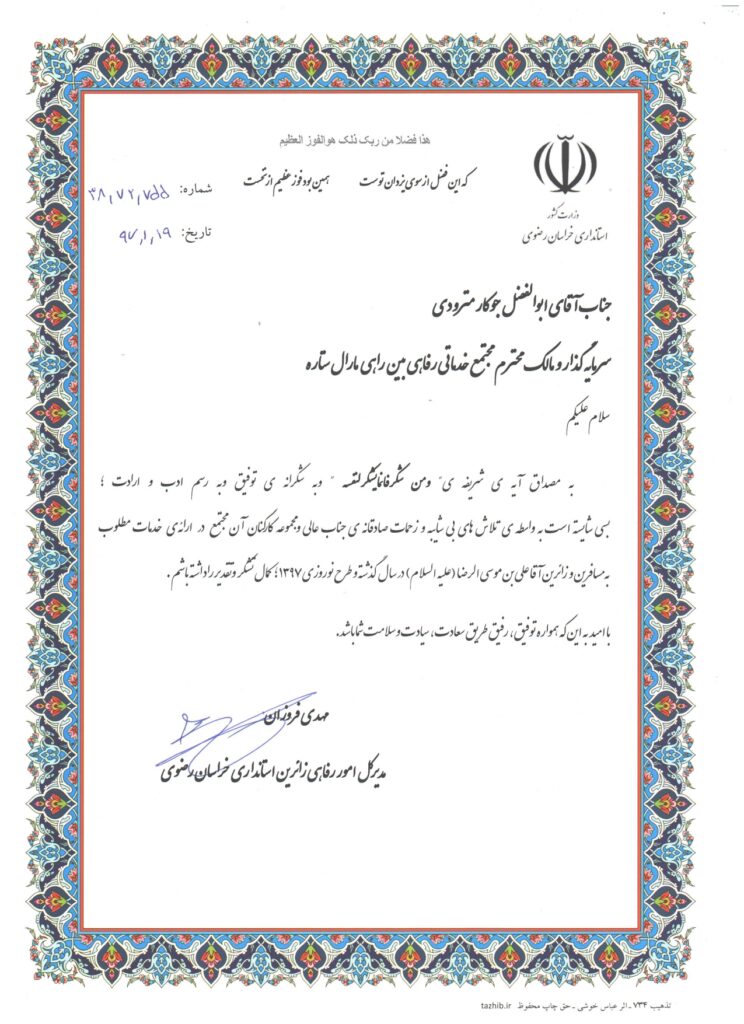 هذا فضلا من ربک ذلک هوالفوز العظیم
که این فضل از سوی یزدان توست همین بود فوز عظیم از نخست
وزارت کشور
استانداری خراسان رضوی
شماره: ۳۸,۷۲,۷۵۵
تاریخ: ۹۷,۱,۱۹
جناب آقای ابوالفضل جوکار مترودی
سرمایه گذار و مالک محترم مجتمع خدماتی رفاهی بین راهی مارال ستاره
سلام علیکم
به مصداق آیه ی شریفه ی" ومن شکرفانمایشکرلنفسه " وبه شکرانه ی توفیق وبه رسم ادب و ارادت ؛
بسی شایسته است به واسطه ی تلاش های بی شایبه و زحمات صادقانه ی جناب عالی و مجموعه کارکنان آن مجتمع در ارائه ی خدمات مطلوب
به مسافرین و زائرین آقا علی بن موسی الرضا (علیه السلام) در سال گذشته و طرح نوروزی ۱۳۹۷؛ کمال تشکر و تقدیر را داشته باشم .
با امید به این که همواره توفیق، رفیق طریق سعادت، سیادت و سلامت شما باشد.
مهدی فروزان
مدیرکل امور رفاهی زائرین استانداری خراسان رضوی
تذهیب ۷۳۴ ـ اثر عباس خوشی ـ حق چاپ محفوظ tazhib.ir